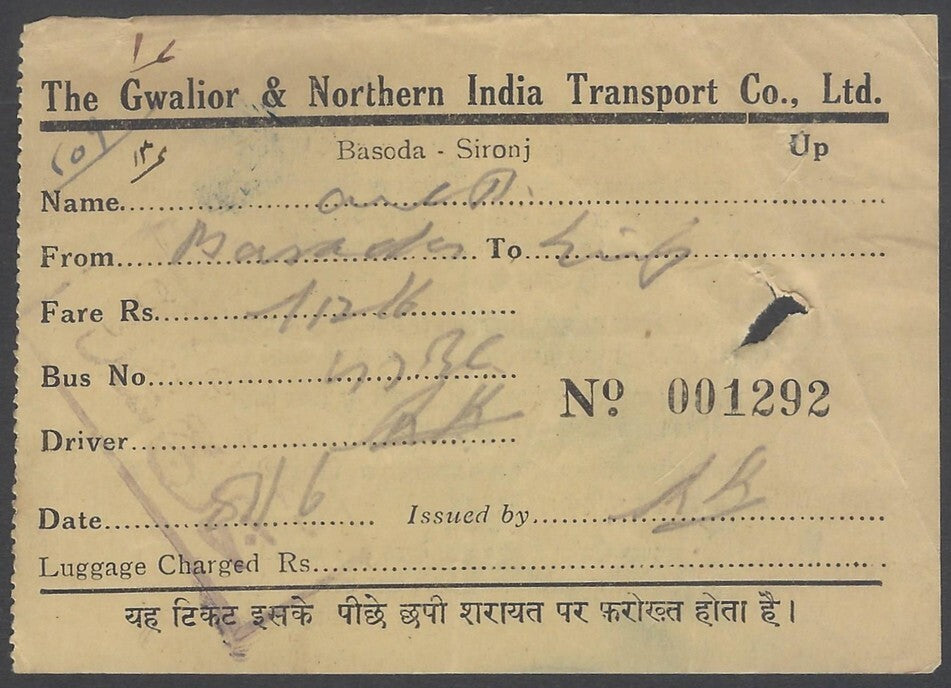 The Gwalior & Northern India Transport Co., Ltd.
Basoda - Sironj Up
Name
From Basoda To
Fare Rs.
Bus No
Nº 001292
Driver KK
Date Issued by KK
Luggage Charged Rs.
यह टिकट इसके पीछे छपी शरायत पर फ़रोख्त होता है।